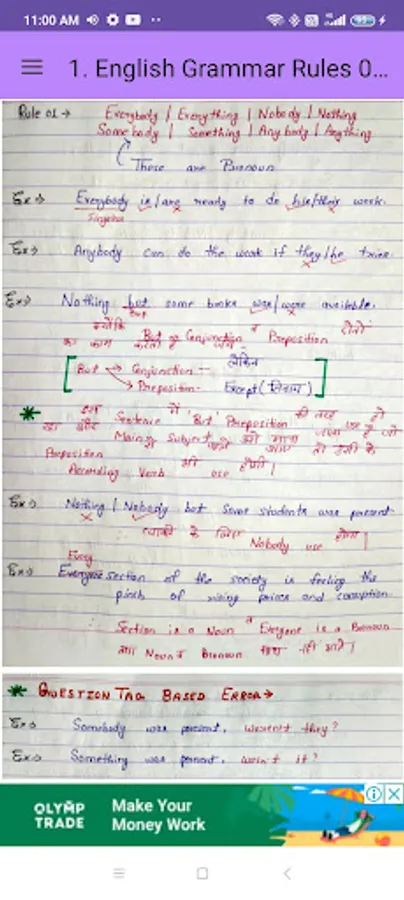 11:00 AM
1. English Grammar Rules 0...
Rule 01 → Everybody | Everything | Nobody | Nothing
Somebody | Something | Anybody | Anything
These are Pronoun
Ex → Everybody is/are ready to do his/their work.
Singular
Ex → Anybody can do the work if they/he tries.
Ex → Nothing but some books was/were available.
क्योंकि But Conjunction व Preposition दोनों
का काम करता है
But → Conjunction - लेकिन
→ Preposition - Except (सिवाय)
* इस Sentence में 'But' Preposition की तरह
Main Subject
Preposition
According Verb use होगी।
Ex → Nothing | Nobody but some students was present
के लिए Nobody use होगा।
Every
Ex → Everyone section of the society is feeling the
pinch of rising prices and corruption
∴ Section is a Noun व Everyone is a Pronoun
Noun व Pronoun साथ नहीं आते।
* QUESTION TAG BASED ERROR →
Ex → Somebody was present, weren't they?
Ex → Something was present, wasn't it?
OLYMP TRADE
Make Your
Money Work